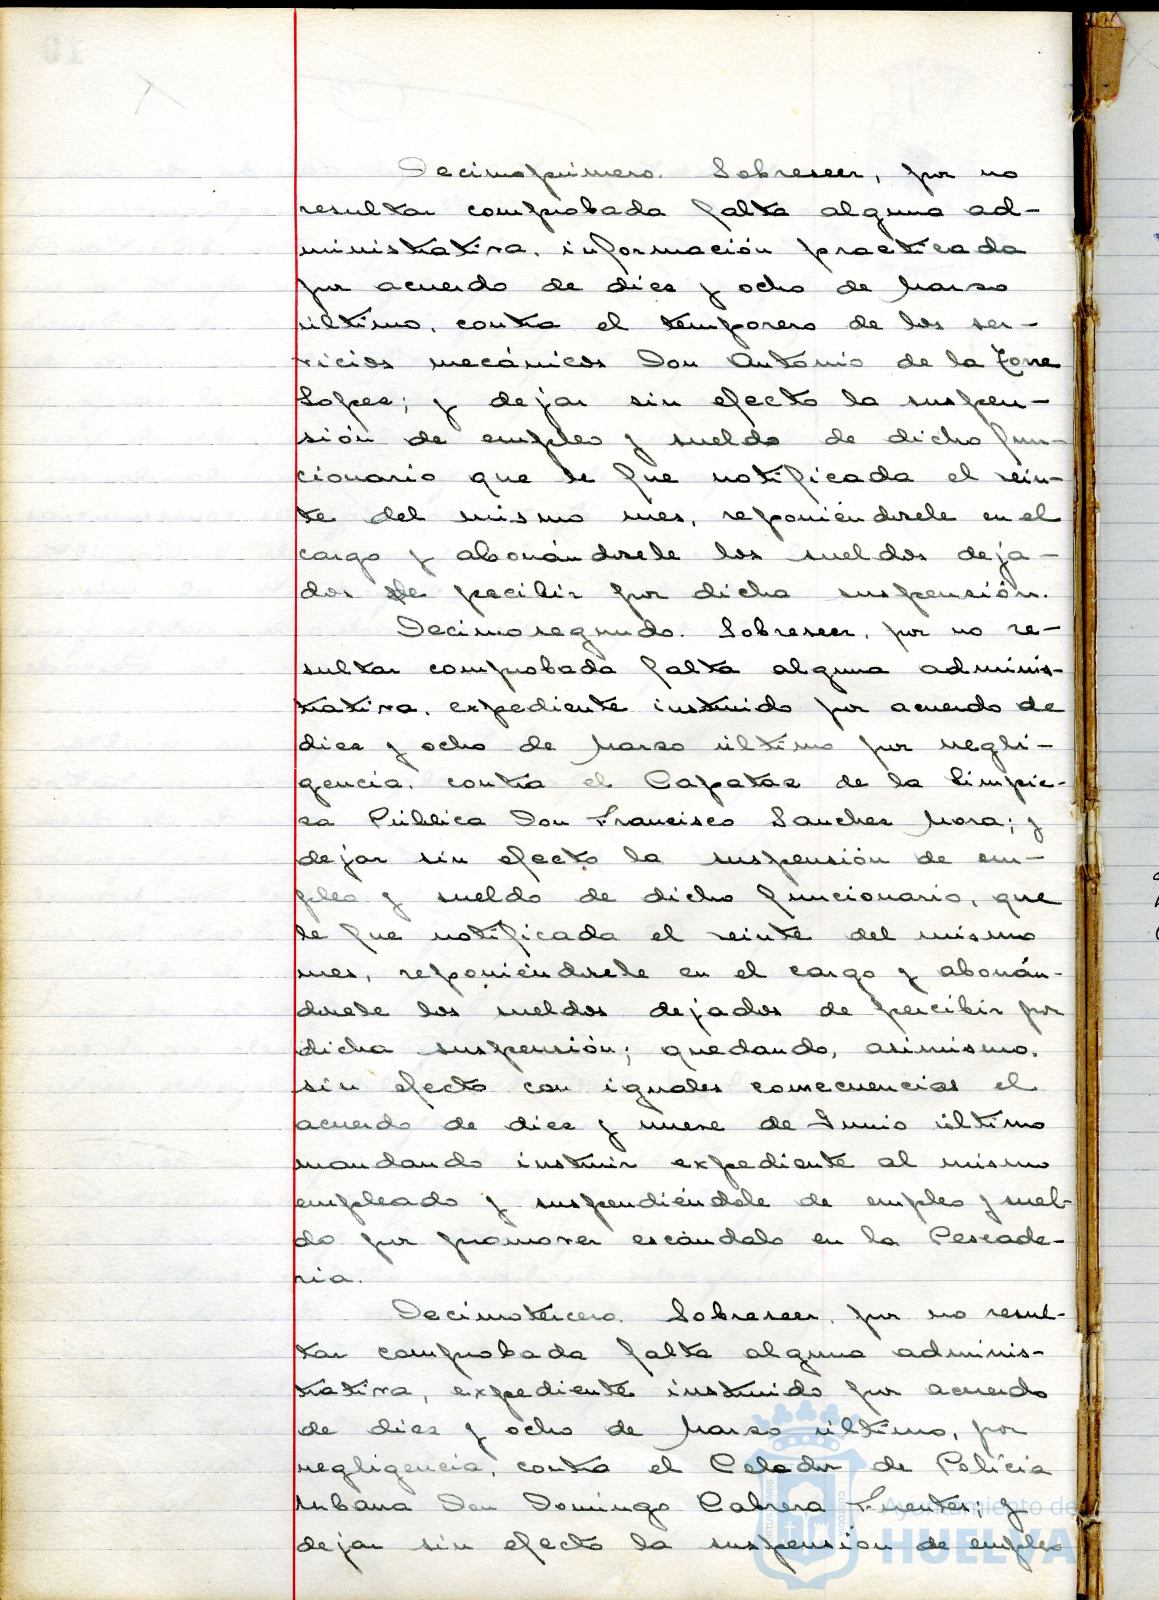 Decimoprimero. Sobreseer, por no
resultar comprobada falta alguna ad-
ministrativa, información practicada
por acuerdo de diez y ocho de Marzo
último, contra el temporero de los ser-
vicios mecánicos Don Antonio de la Torre
Lopez; y dejar sin efecto la suspen-
sión de empleo y sueldo de dicho fun-
cionario que le fue notificada el vein-
te del mismo mes, reponiéndosele en el
cargo y abonándosele los sueldos deja-
dos de pecibir por dicha suspensión.
Decimosegundo. Sobreseer, por no re-
sultar comprobada falta alguna adminis-
trativa, expediente instruido por acuerdo de
diez y ocho de Marzo último por negli-
gencia, contra el Capataz de la Limpie-
za Pública Don Francisco Sanchez Mora; y
dejar sin efecto la suspensión de em-
pleo y sueldo de dicho funcionario, que
le fue notificada el veinte del mismo
mes, reponiéndosele en el cargo y abonán-
dosele los sueldos dejados de percibir por
dicha suspensión; quedando, asimismo,
sin efecto con iguales consecuencias el
acuerdo de diez y nueve de Junio último
mandando instruir expediente al mismo
empleado y suspendiéndole de empleo y suel-
do por promover escándalo en la Pescade-
ria.
Decimotercero. Sobreseer, por no resul-
tar comprobada falta alguna adminis-
trativa, expediente instruido por acuerdo
de diez y ocho de Marzo último, por
negligencia, contra el Celador de Policía
urbana Don Domingo Cabrera Fuentes; y
dejar sin efecto la suspensión de empleo
Ayuntamiento de
HUELVA